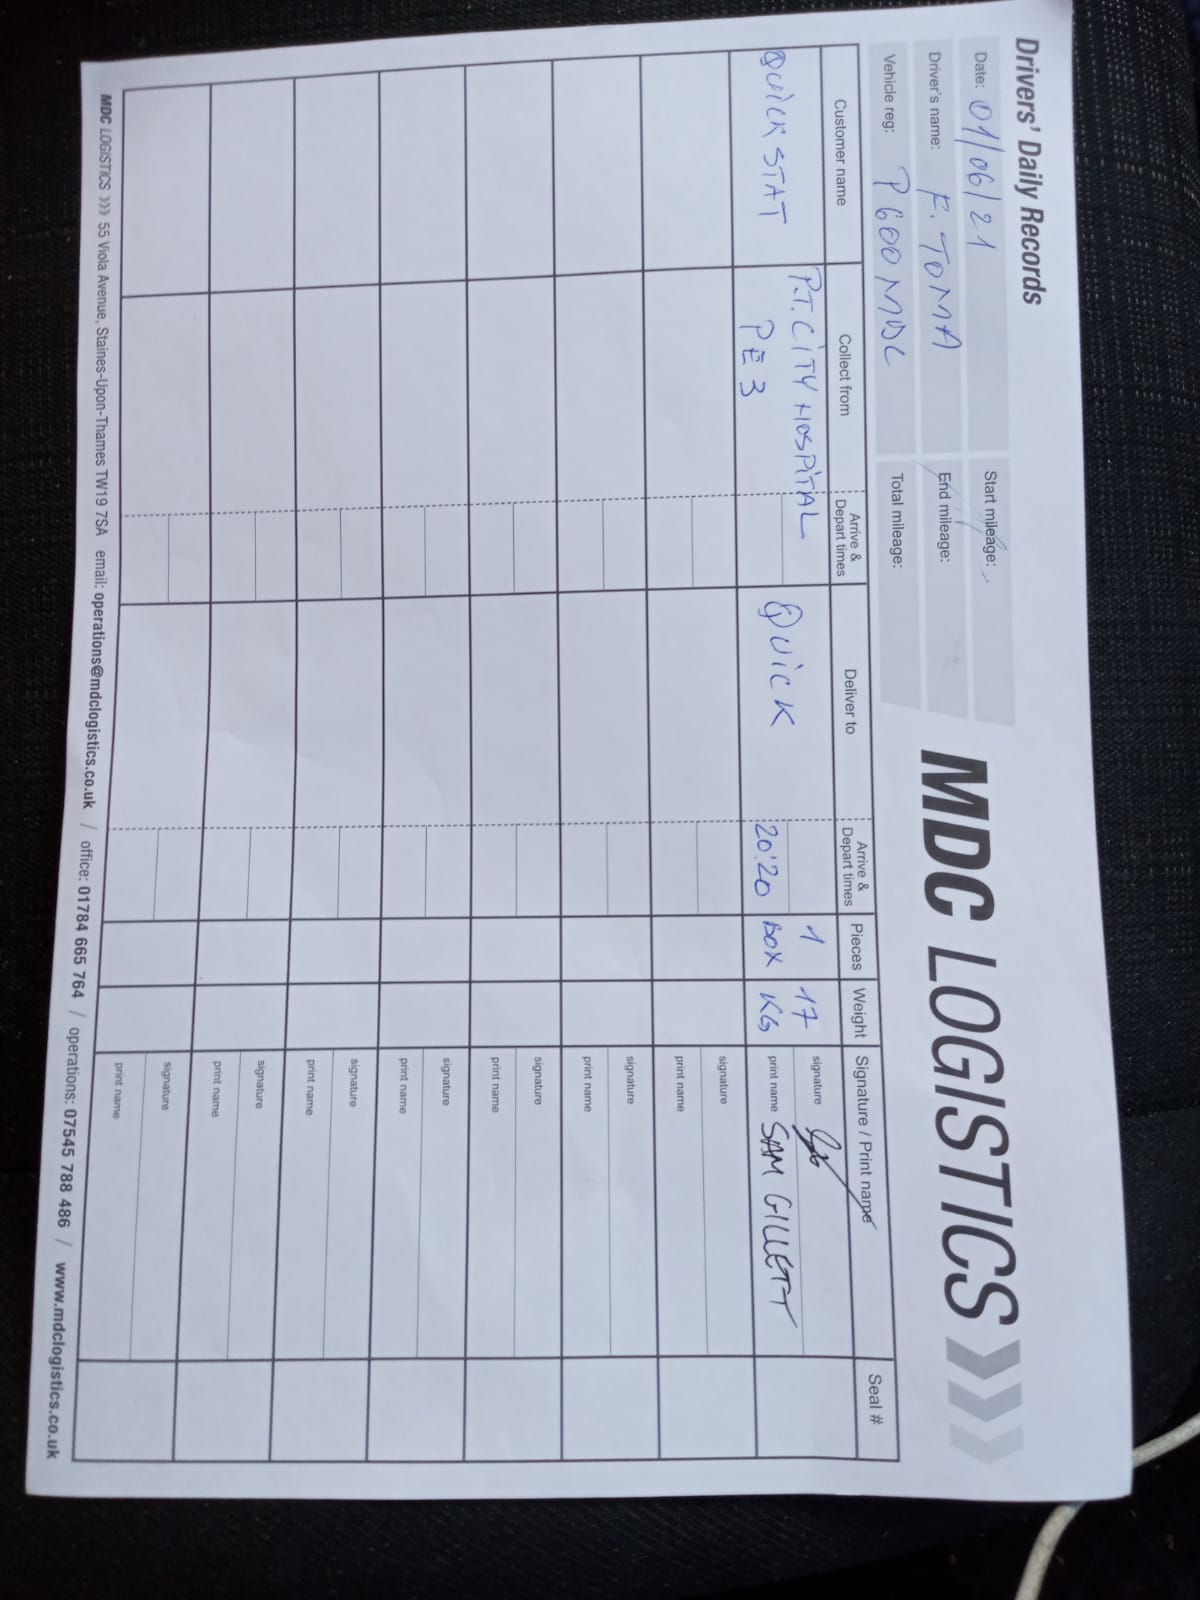 Drivers' Daily Records
MDC LOGISTICS
Date: 01/06/21
Start mileage:
Driver's name: F. TOMA
End mileage:
Vehicle reg: P600MDC
Total mileage:
Customer name Collect from Arrive & Depart times Deliver to Arrive & Depart times Pieces Weight Signature / Print name Seal #
QUICK STAT P.T. CITY HOSPITAL PE3 QUICK 20:20 1 BOX 17 KG signature
print name SAM GILLETT
signature
print name
signature
print name
signature
print name
signature
print name
signature
print name
signature
print name
signature
print name
MDC LOGISTICS >>> 55 Viola Avenue, Staines-Upon-Thames TW19 7SA email: operations@mdclogistics.co.uk / office: 01784 665 764 / operations: 07545 788 486 / www.mdclogistics.co.uk